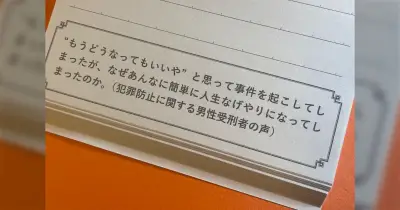 “もうどうなってもいいや”と思って事件を起こしてし
まったが、なぜあんなに簡単に人生なげやりになってし
まったのか。(犯罪防止に関する男性受刑者の声)